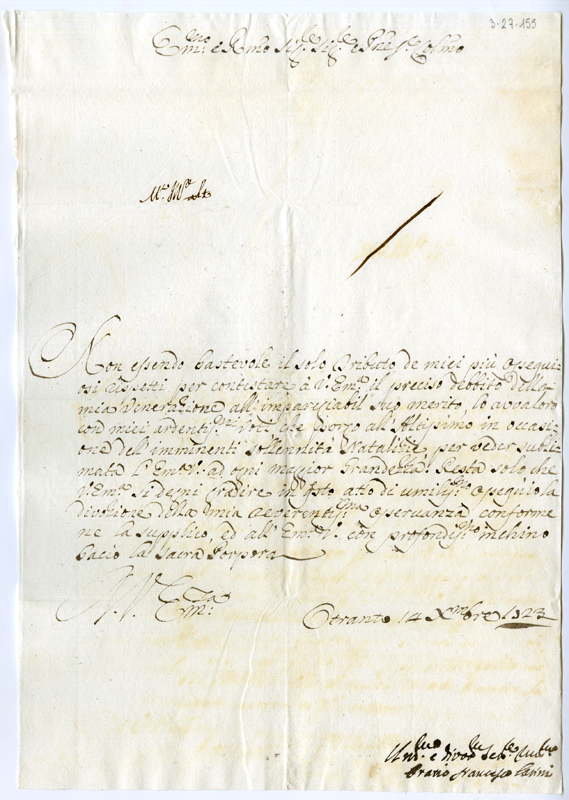 3-27-155
Em.mo e R.mo Sig.r Sig.r e P̃ne S.r Colmo
Non essendo bastevole il solo Tributo de miei più ossequi-
osi rispetti per contestare à V. Em.a il preciso debbito della
mia Venerazione all'impareggiabil suo merito, lo avvaloro
coi miei ardenti.mi Voti, che porgo all'Altissimo in occasi-
one dell'imminenti sollennità Natalizie, per veder subli-
mata l'Em.a V.a ad ogni maggior Grandezza. Resta solo che
V. Em.a si degni gradire in q̃sto atto di umiliss.mo ossequio la
divozione della mia reverentis.ma osservanza, conforme
ne la supplico, ed all'Em.a V.a con profondis.mo inchino
bacio la Sacra Porpora
Di V. Em.za
Otranto 14 Xmbre 1723
Um.mo e divo.mo
Francesco